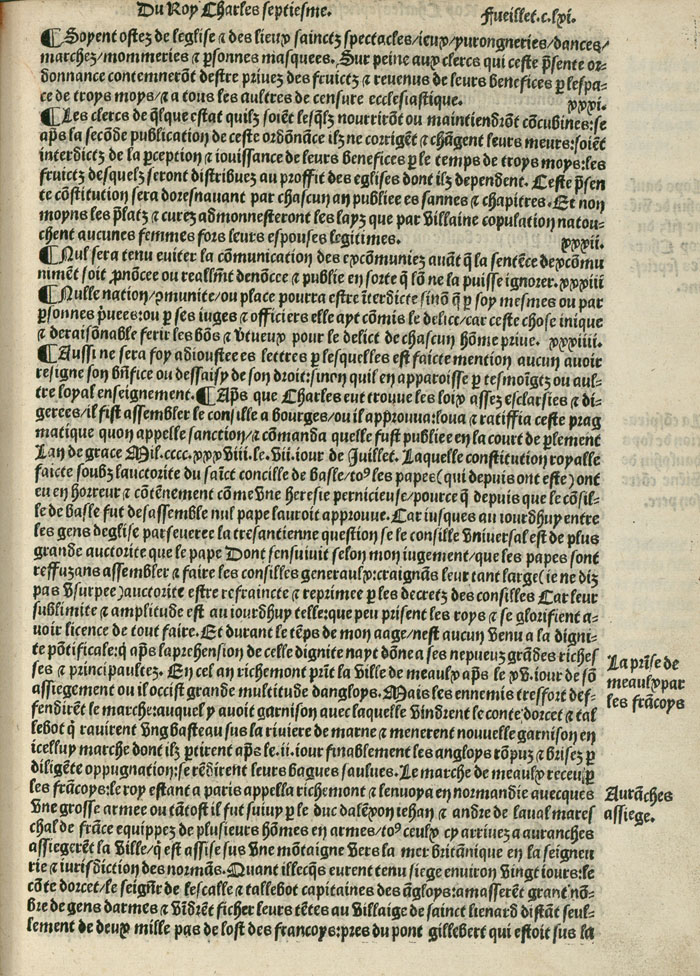 Du Roy Charles septiesme.
Fueillet.c.lxi.
¶Soyent ostez de leglise ⁊ des lieux sainctz spectacles/ieux/yurongneries/dances/
marchez/mommeries ⁊ p̱sonnes masquees. Sur peine aux clercs qui ceste p̃sente or-
donnance contemnerõt destre priuez des fruictz ⁊ reuenus de leurs benefices p̱ lespa-
ce de troys moys/⁊ a tous les aultres de censure ecclesiastique. xxxi.
¶Les clercs de q̃lque estat quilz soiẽt lesq̃lz nourrirõt ou maintiendrõt cõcubines:se
ap̃s la secõde publication de ceste ordõnãce ilz ne corrigẽt ⁊ chãgent leurs meurs:soiẽt
interdictz de la p̱ception ⁊ iouissance de leurs benefices p̱ le temps de troys moys:les
fruictz desquelz seront distribuez au proffit des eglises dont ilz dependent. Ceste p̃sen
te cõstitution sera doresnauant par chascun an publiee es sannes ⁊ chapitres. Et non
moyns les p̃latz ⁊ curez admonnesteront les layz que par villaine copulation natou-
chent aucunes femmes fors leurs espouses legitimes. xxxii.
¶Nul sera tenu euiter la cõmunication des excõmuniez auãt q̃ la sentẽce dexcõmu
nimẽt soit p̃noncee ou reallm̃t denõcee ⁊ publie en sorte q̃ lõ ne la puisse ignorer. xxxiii
¶Nulle nation/ꝯmunite/ou place pourra estre ĩterdicte sinõ q̃ p̱ soy mesmes ou par
p̱sonnes p̃uees:ou p̱ ses iuges ⁊ officiers elle ayt cõmis le delict/car ceste chose inique
⁊ deraisõnable ferir les bõs ⁊ v̾tueux pour le delict de chascun hõme priue. xxxiiii.
¶Aussi ne sera foy adioustee es lettres p̱ lesquelles est faicte mention aucun auoir
resigne son bñfice ou dessaisy de son droit:sinon quil en apparoisse p̱ tesmoĩgtz ou aul-
tre loyal enseignement. ¶Ap̃s que Charles eut trouue les loix assez esclarsies ⁊ di-
gerees/il fist assembler le consille a bourges/ou il approuua:loua ⁊ ratiffia ceste prag
matique quon appelle sanction/⁊ cõmanda quelle fust publiee en la court de p̱lement
Lan de grace Mil.cccc.xxxviii.le.vii.iour de Juillet. Laquelle constitution royalle
faicte soubz lauctorite du saĩct concille de basle/toꝰ les papes(qui depuis ont este) ont
eu en horreur ⁊ cõtẽnement cõme vne heresie pernicieuse/pource q̃ depuis que le cõsil-
le de basle fut desassemble nul pape lauroit approuue. Car iusques au iourdhuy entre
les gens deglise parseuere la tresantienne question se le consille vniuersal est de plus
grande auctorite que le pape Dont sensuiuit selon mon iugement/que les papes sont
reffuzans assembler ⁊ faire les consilles generaulx:craignãs leur tant large(ie ne diz
pas vsurpee)auctorite estre refraincte ⁊ reprimee p̱ les decretz des consilles Car leur
sublimite ⁊ amplitude est au iourdhuy telle:que peu prisent les roys ⁊ se glorifient a-
uoir licence de tout faire. Et durant le tẽps de mon aage/nest aucun venu a la digni-
te põtificale:q̃ ap̃s laprehension de celle dignite nayt dõne a ses nepueuz grãdes riches
ses ⁊ principaultez. En cel an richemont prĩt la ville de meaulx ap̃s le xv. iour de sõ
assiegement ou il occist grande multitude danglоys. Mais les ennemis tressfort def-
fendirẽt le marche:auquel y auoit garnison auec laquelle vindrent le conte dorcet ⁊ tal
lebot q̃ rauirent vng basteau sus la riuiere de marne ⁊ menerent nouuelle garnison en
icelluy marche dont ilz p̱tirent ap̃s le.ii.iour finablement les angloys rõpuz ⁊ brisez p̱
diligẽte oppugnation:se rẽdirent leurs bagues saulues. Le marche de meaulx receu p̱
les frãcoys:le roy estant a paris appella richemont ⁊ lenuoya en normandie auecques
vne grosse armee ou tãtost il fut suiuy p̱ le duc dalẽxon iehan ⁊ andre de laual mares
chal de frãce equippez de plusieurs hõmes en armes/toꝰ ceulx cy arriuez a auranches
assiegerẽt la ville/q̃ est assise sus vne mõtaigne vers la mer britãnique en la seigneu
rie ⁊ iurisdiction des normãs. Quant illecq̃s eurent tenu siege enuiron vingt iours:le
cõte dorcet/le seigñr de lescalle ⁊ tallebot capitaines des ãgloys:amasserẽt grant nõ-
bre de gens darmes ⁊ vĩdrẽt ficher leurs tẽtes au villaige de sainct lienard distãt seul-
lement de deux mille pas de lost des francoys:pres du pont gillebert qui estoit sus la
La prĩse de
meaulx par
les frãcoys
Aurãches
assiege.